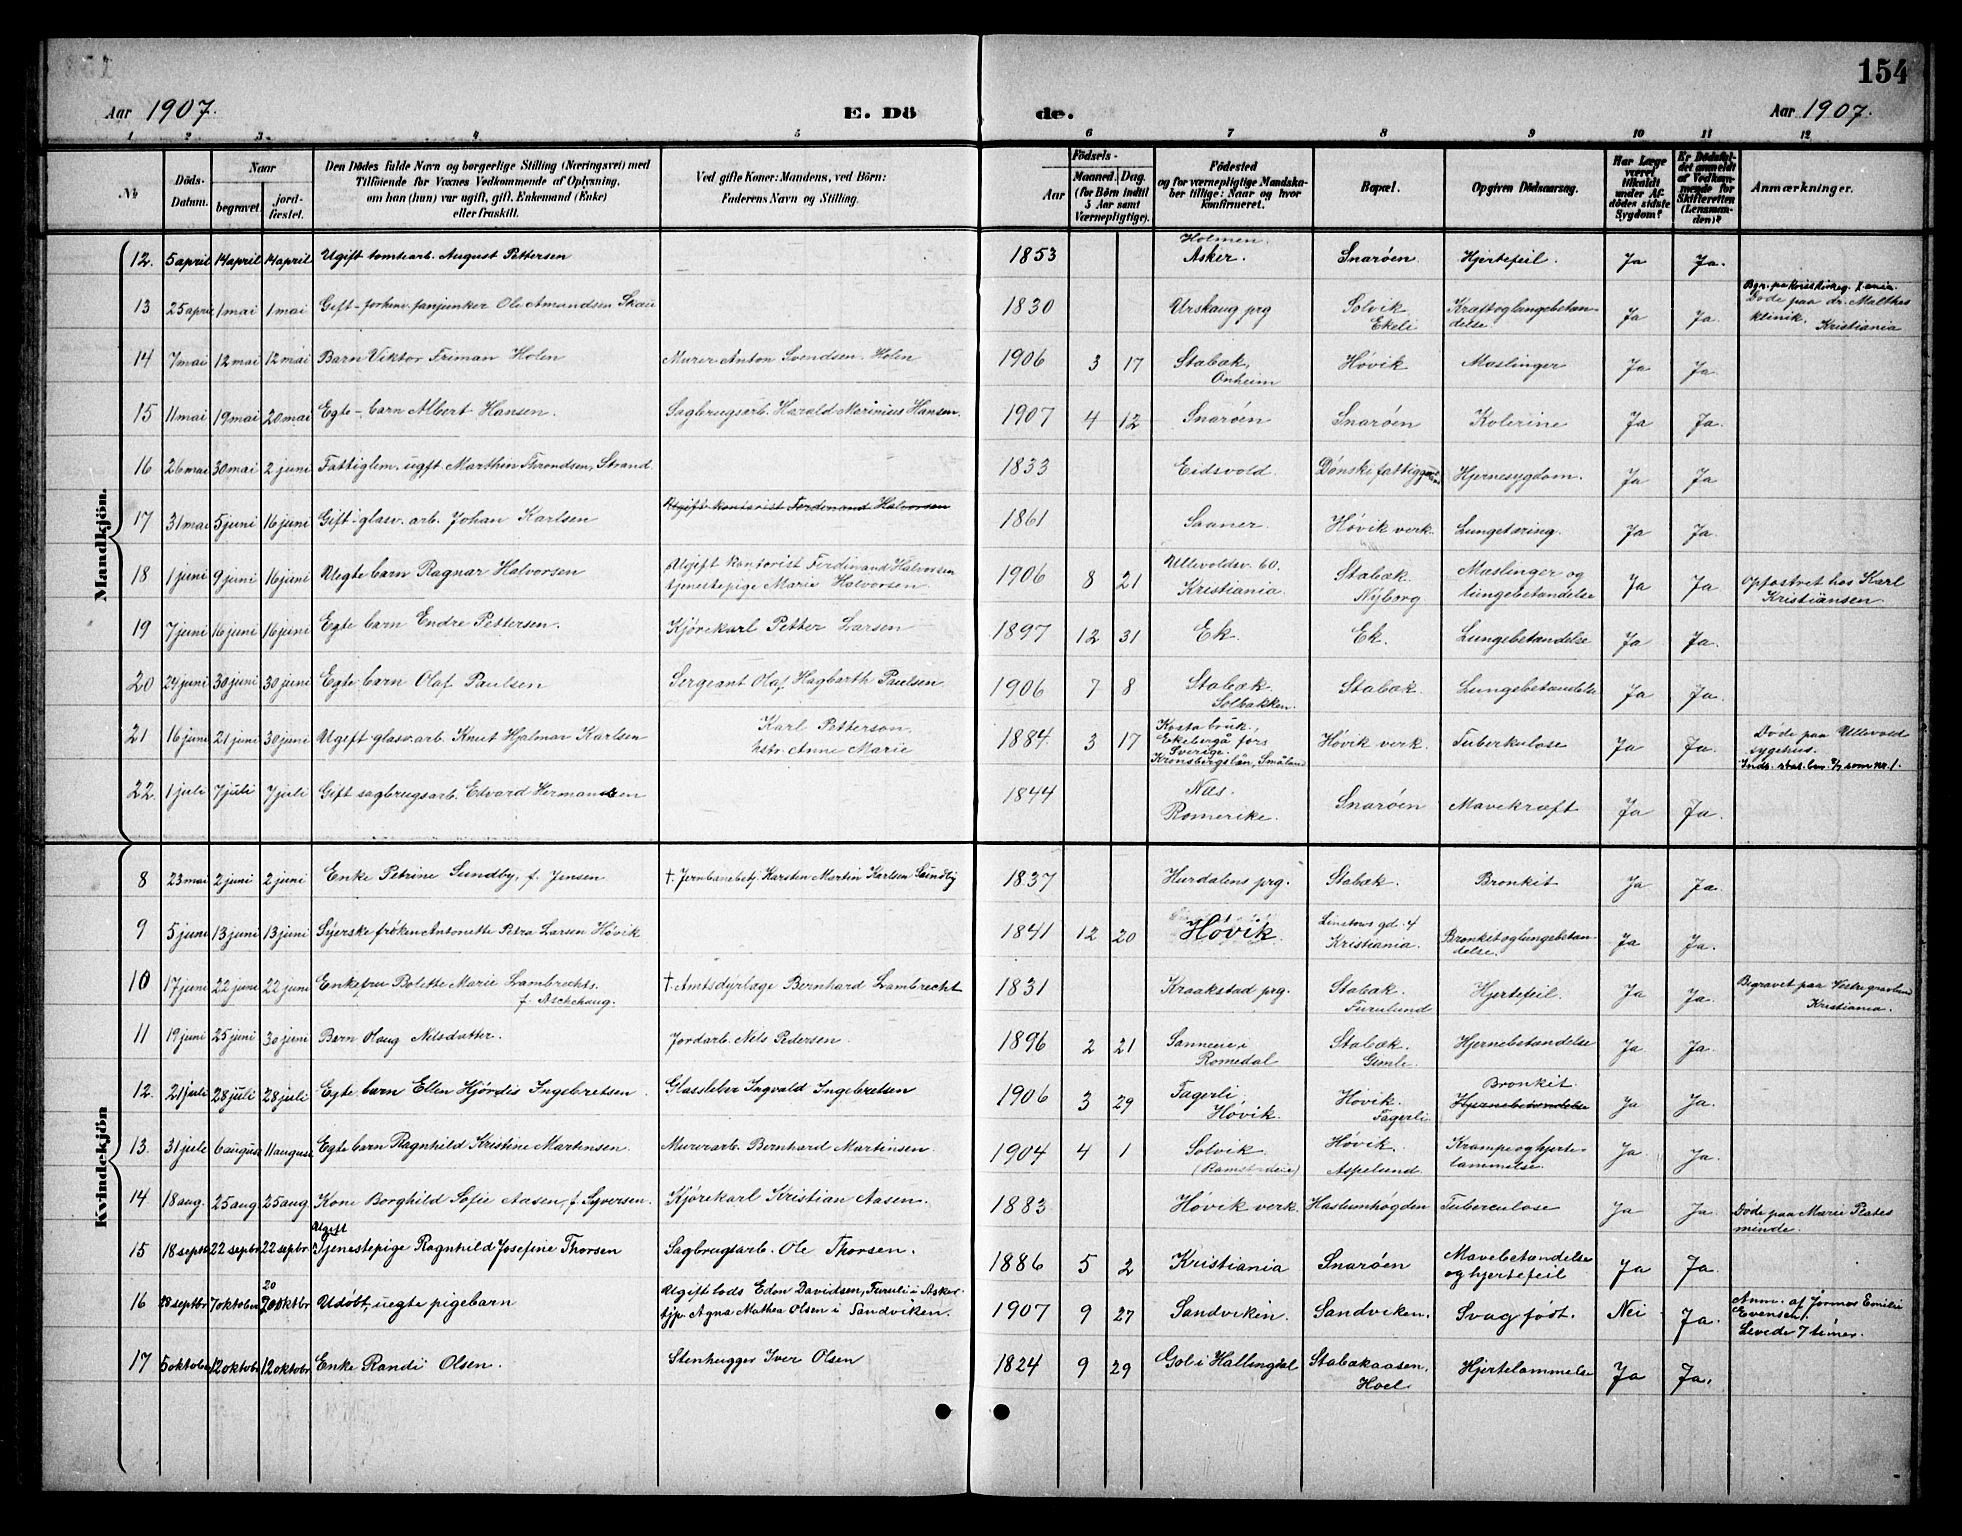 154
Aar 1907. E. Dö de. Aar 1907.
1 2 3 4 5 6 7 8 9 10 11 12
No
Döds-Datum.
Naar
begravet.
jordfæstet.
Den Dödes fulde Navn og borgerlige Stilling (Næringsvei) med
Tilföiende for Voxnes Vedkommende af Oplysning,
om han (hun) var ugift, gift, Enkemand (Enke)
eller fraskilt.
Ved gifte Koner: Mandens, ved Börn:
Faderens Navn og Stilling.
Födsels-
Aar
Maaned. Dag.
(for Börn indtil
5 Aar samt
Værnepligtige).
Födested
og for værnepligtige Mandska-
ber tillige: Naar og hvor
konfirmeret.
Bopæl.
Opgiven Dödsaarsag.
Har Læge
været
tilkaldt
under Af-
dödes sidste
Sygdom?
Er Dödsfal-
det anmeldt
af Vedkom-
mende for
Skifteretten
(Lensman-
den)?
Anmærkninger.
Mandkjön.
12. 5 april 14 april 14 april Ugift tomtearb. August Pettersen 1853 Holmen. Asker. Snarøen Hjertefeil. Ja Ja.
13 25 april 1 mai 1 mai Gift - forhenv. fanjunker Ole Amundsen Skau 1830 Urskaug prg Solvik Ekeli Kræft og lungebetændelse Ja Ja. Døde paa dr. Malthes klinik. Kristiania
14 7 mai 12 mai 12 mai Barn Viktor Friman Holen Murer Anton Svendsen Holen 1906 3 17 Stabæk, Onheim Høvik Maslinger Ja Ja.
15 11 mai 19 mai 20 mai Egte - barn Albert Hansen. Sagbrugsarb. Harald Marinius Hansen. 1907 4 12 Snarøen Snarøen Kolerine Ja Ja.
16 26 mai 30 mai 2 juni Fattiglem, ugft Marthin Throndsen, Strand 1833 Eidsvold. Dønski fattiggaard Hjernesygdom. Ja Ja
17 31 mai 5 juni 16 juni Gift - glasv. arb. Johan Karlsen Ugift kontorist Ferdinand Halvorsen 1861 Saaner. Høvik verk. Lungetæring. Ja Ja
18 1 juni 9 juni 16 juni Uegte barn Ragnar Halvorsen Ugift kontorist Ferdinand Halvorsen tjenestepige Marie Halvorsen 1906 8 21 Ullevoldsv. 60. Kristiania. Stabæk. Nyborg Maslinger og lungebetændelse Ja Ja Opfostret hos Karl Kristiansen
19 7 juni 16 juni 16 juni Egte barn Endre Pettersen. Kjørekarl Petter Larsen 1897 12 31 Ek. Ek. Lungebetændelse Ja Ja.
20 24 juni 30 juni 30 juni Egte barn Olaf Paulsen Sergeant Olaf Hagbarth Paulsen 1906 7 8 Stabæk Solbakken. Stabæk. Lungebetændelse Ja Ja.
21 16 juni 21 juni 30 juni Ugift glasv. arb. Knut Hjalmar Karlsen Karl Petterson hstr. Anne Marie 1884. 3 17 Kosta bruk, Ekebergå fors Sverige. Kronsbergslän, Småland Høvik verk. Tuberkulose Ja Ja. Døde paa Ullevold sygehus.
22. 1 juli 7 juli 7 juli Gift sagbrugsarb. Edvard Hermansen 1844 Næs. Romerike. Snarøen Mavekræft Ja Ja.
Kvindekjön
8 23 mai 2 juni 2 juni Enke Petrine Sundby, f. Jensen † Jernbanebetj. Karsten Martin Karlsen Sundby 1837 Hurdalens prg. Stabæk. Bronkit Ja Ja.
9 5 juni 13 juni 13 juni Syerske frøken Antonette Petra Larsen Høvik 1841 12 20 Høvik. Linstows gd. 4 Kristiania. Bronkit og lungebetændelse. Ja Ja.
10 17 juni 22 juni 22 juni Enkefru Bolette Marie Lambrechts. f. Aschehoug. † Amtsdyrlæge Bernhard Lambrecht 1831 Kraakstad prg. Stabæk. Furulund Hjertefeil. Ja Ja. Begravet paa Vestre gravlund Kristiania.
11 19 juni 25 juni 30 juni Barn Olaug Nilsdatter. Jordarb. Nils Pedersen. 1896 2 21 Romedal Stabæk. Gimle. Hjernebetændelse Ja Ja.
12. 21 juli 28 juli 28 juli Egte barn Ellen Hjørdis Ingebretsen Glassleber Ingvald Ingebretsen 1906 3 29 Fagerli, Høvik Høvik. Fagerli Bronkit. Hjernebetændelse Ja Ja.
13. 31 jule 6 august 11 august Egte barn Ragnhild Kristine Martinsen Murerarb. Bernhard Martinsen 1904 4 1 Solvik Høvik. Aspelund Krampe og hjertelammelse. Ja Ja.
14 18 aug. 25 aug 25 aug Kone Borghild Sofie Aasen, f. Syversen. Kjørekarl Kristian Aasen. 1883 Høvik verk. Haslumhøgden Tuberculose Ja Ja. Døde paa Marie Plates minde.
15 18 septbr 22 sepbr 22 sepbr Ugift Tjenestepige Ragnhild Josefine Thorsen Sagbrugsarb. Ole Thorsen. 1886 5 2 Kristiania Snarøen Mavebetændelse og hjertefeil Ja Ja.
16 28 septbr 7 oktober 20 oktbr Udøbt uegte pigebarn Ugift lods Edon Davidsen, Furuli i Asker. tjp. Agna Mathea Olsen i Sandviken. 1907 9 27 Sandviken Sandviken. Svag født. Nei Ja. Anm. af Jormor Emilie Evensen. Levede 7 timer.
17 5 oktober 12 oktobr 12 oktobr Enke Randi Olsen. Stenhugger Iver Olsen 1824 9 29 Gol i Hallingdal Stabækaasen. Hoel. Hjertelammelse Ja Ja.